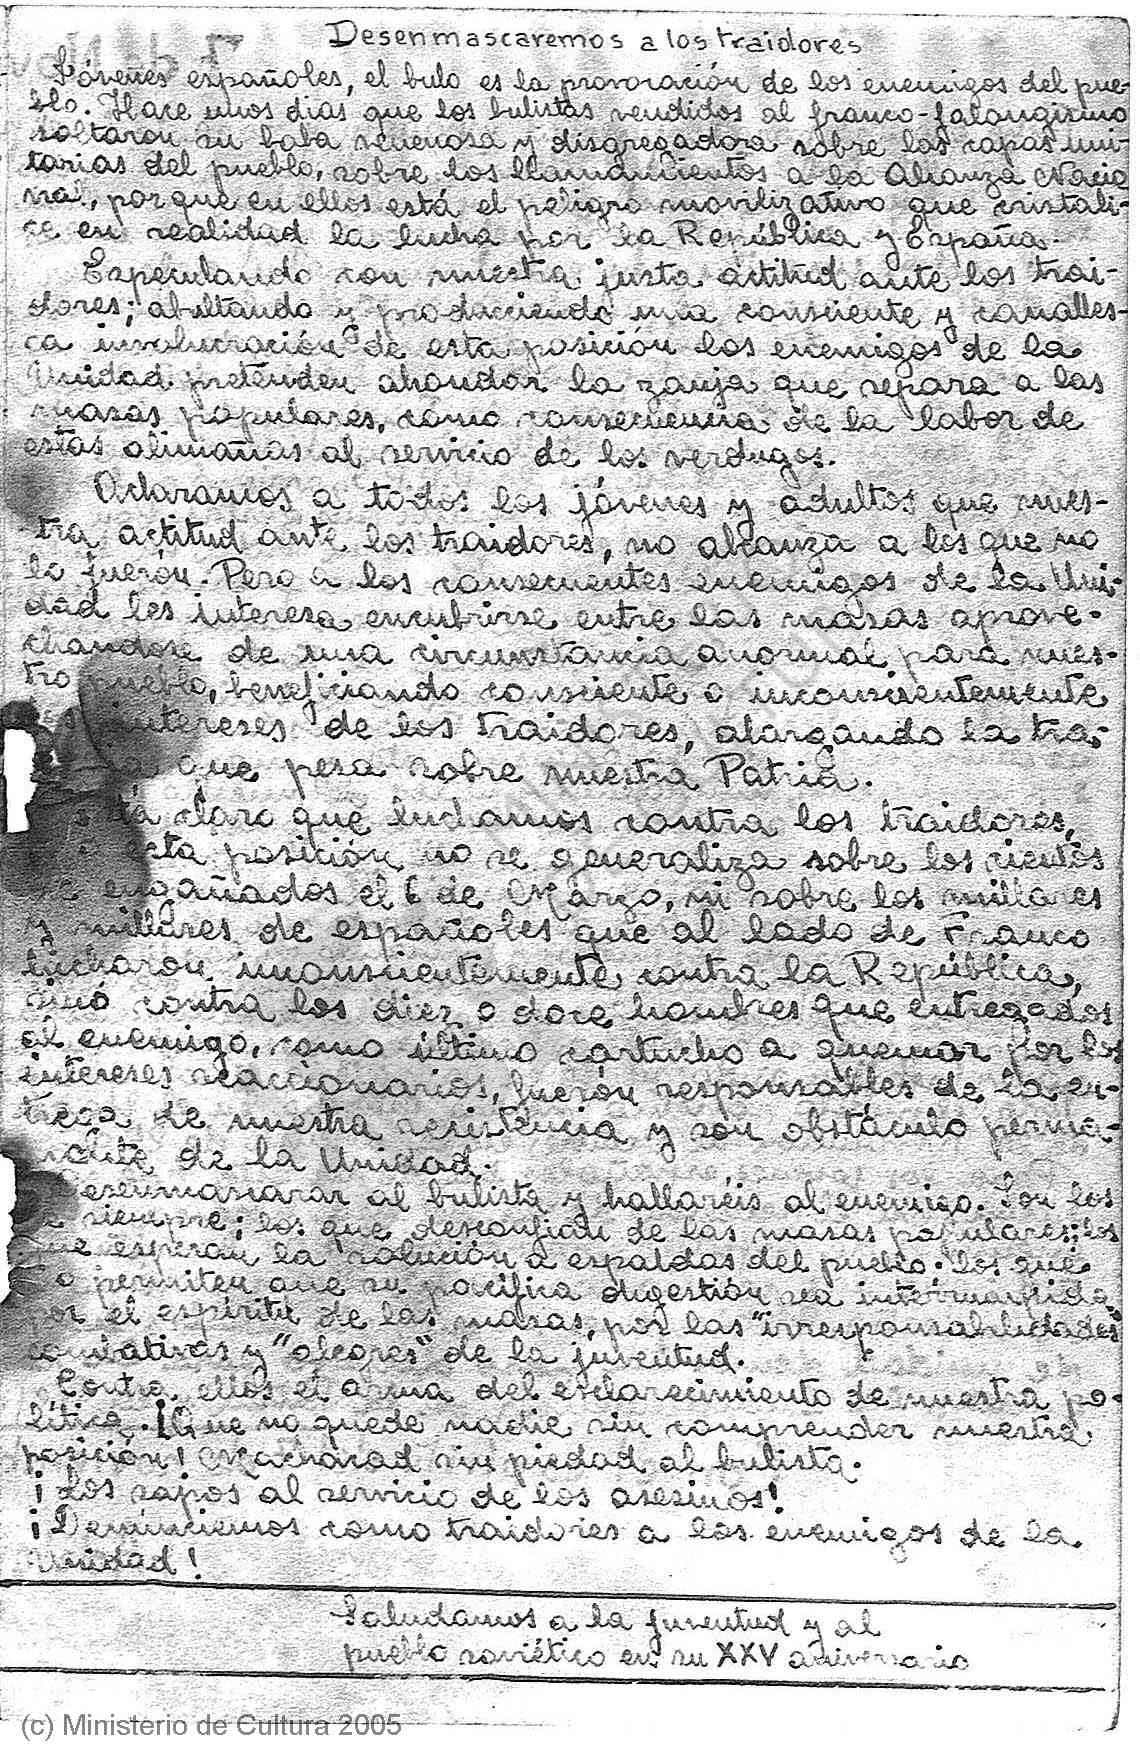 Desenmascaremos a los traidores
Jóvenes españoles, el bulo es la provocación de los enemigos del pue-
blo. Hace unos dias que los bulistas vendidos al franco-falangismo
soltaron su baba venenosa y disgregadora sobre las capas uni-
tarias del pueblo, sobre los llamamientos a la Alianza Nacio
nal, porque en ellos está el peligro movilizativo que cristali-
ce en realidad la lucha por la República y España.
Especulando con nuestra justa actitud ante los trai-
dores; abultando y produciendo una consciente y canalles-
ca involucración de esta posición los enemigos de la
Unidad pretenden ahondar la zanja que separa a las
masas populares, como consecuencia de la labor de
estas alimañas al servicio de los verdugos.
Aclaramos a todos los jóvenes y adultos que nues-
tra actitud ante los traidores, no alcanza a los que no
lo fuerón. Pero a los consecuentes enemigos de la Uni-
dad les interesa encubrirse entre las masas aprove-
chandose de una circunstancia anormal para nues-
tro pueblo, beneficiando consciente o inconscientemente
intereses de los traidores, alargando la tra-
que pesa sobre nuestra Patria.
claro que luchamos contra los traidores,
esta posición no se generaliza sobre los cientos
de engañados el 6 de Marzo, ni sobre los millares
y millares de españoles que al lado de Franco
lucharon inconscientemente contra la República,
sinó contra los diez o doce hombres que entregados
al enemigo, como último cartucho a quemar por los
intereses reaccionarios, fuerón responsables de la en-
trega de nuestra resistencia y son obstáculo perma-
nente de la Unidad.
Desenmascarar al bulista y hallaréis al enemigo. Son los
de siempre; los que desconfian de las masas populares; los
que esperan la solución a espaldas del pueblo; los que
no permiten que su pacífica digestión sea interrumpida
por el espíritu de las masas, por las "irresponsabilidades"
combativas y "alegres" de la juventud.
Contra ellos el arma del esclarecimiento de nuestra po-
lítica. ¡Que no quede nadie sin comprender nuestra
posición! Machacad sin piedad al bulista.
¡Los sapos al servicio de los asesinos!
¡Denunciemos como traidores a los enemigos de la
Unidad!
Saludamos a la juventud y al
pueblo soviético en su XXV aniversario
(c) Ministerio de Cultura 2005